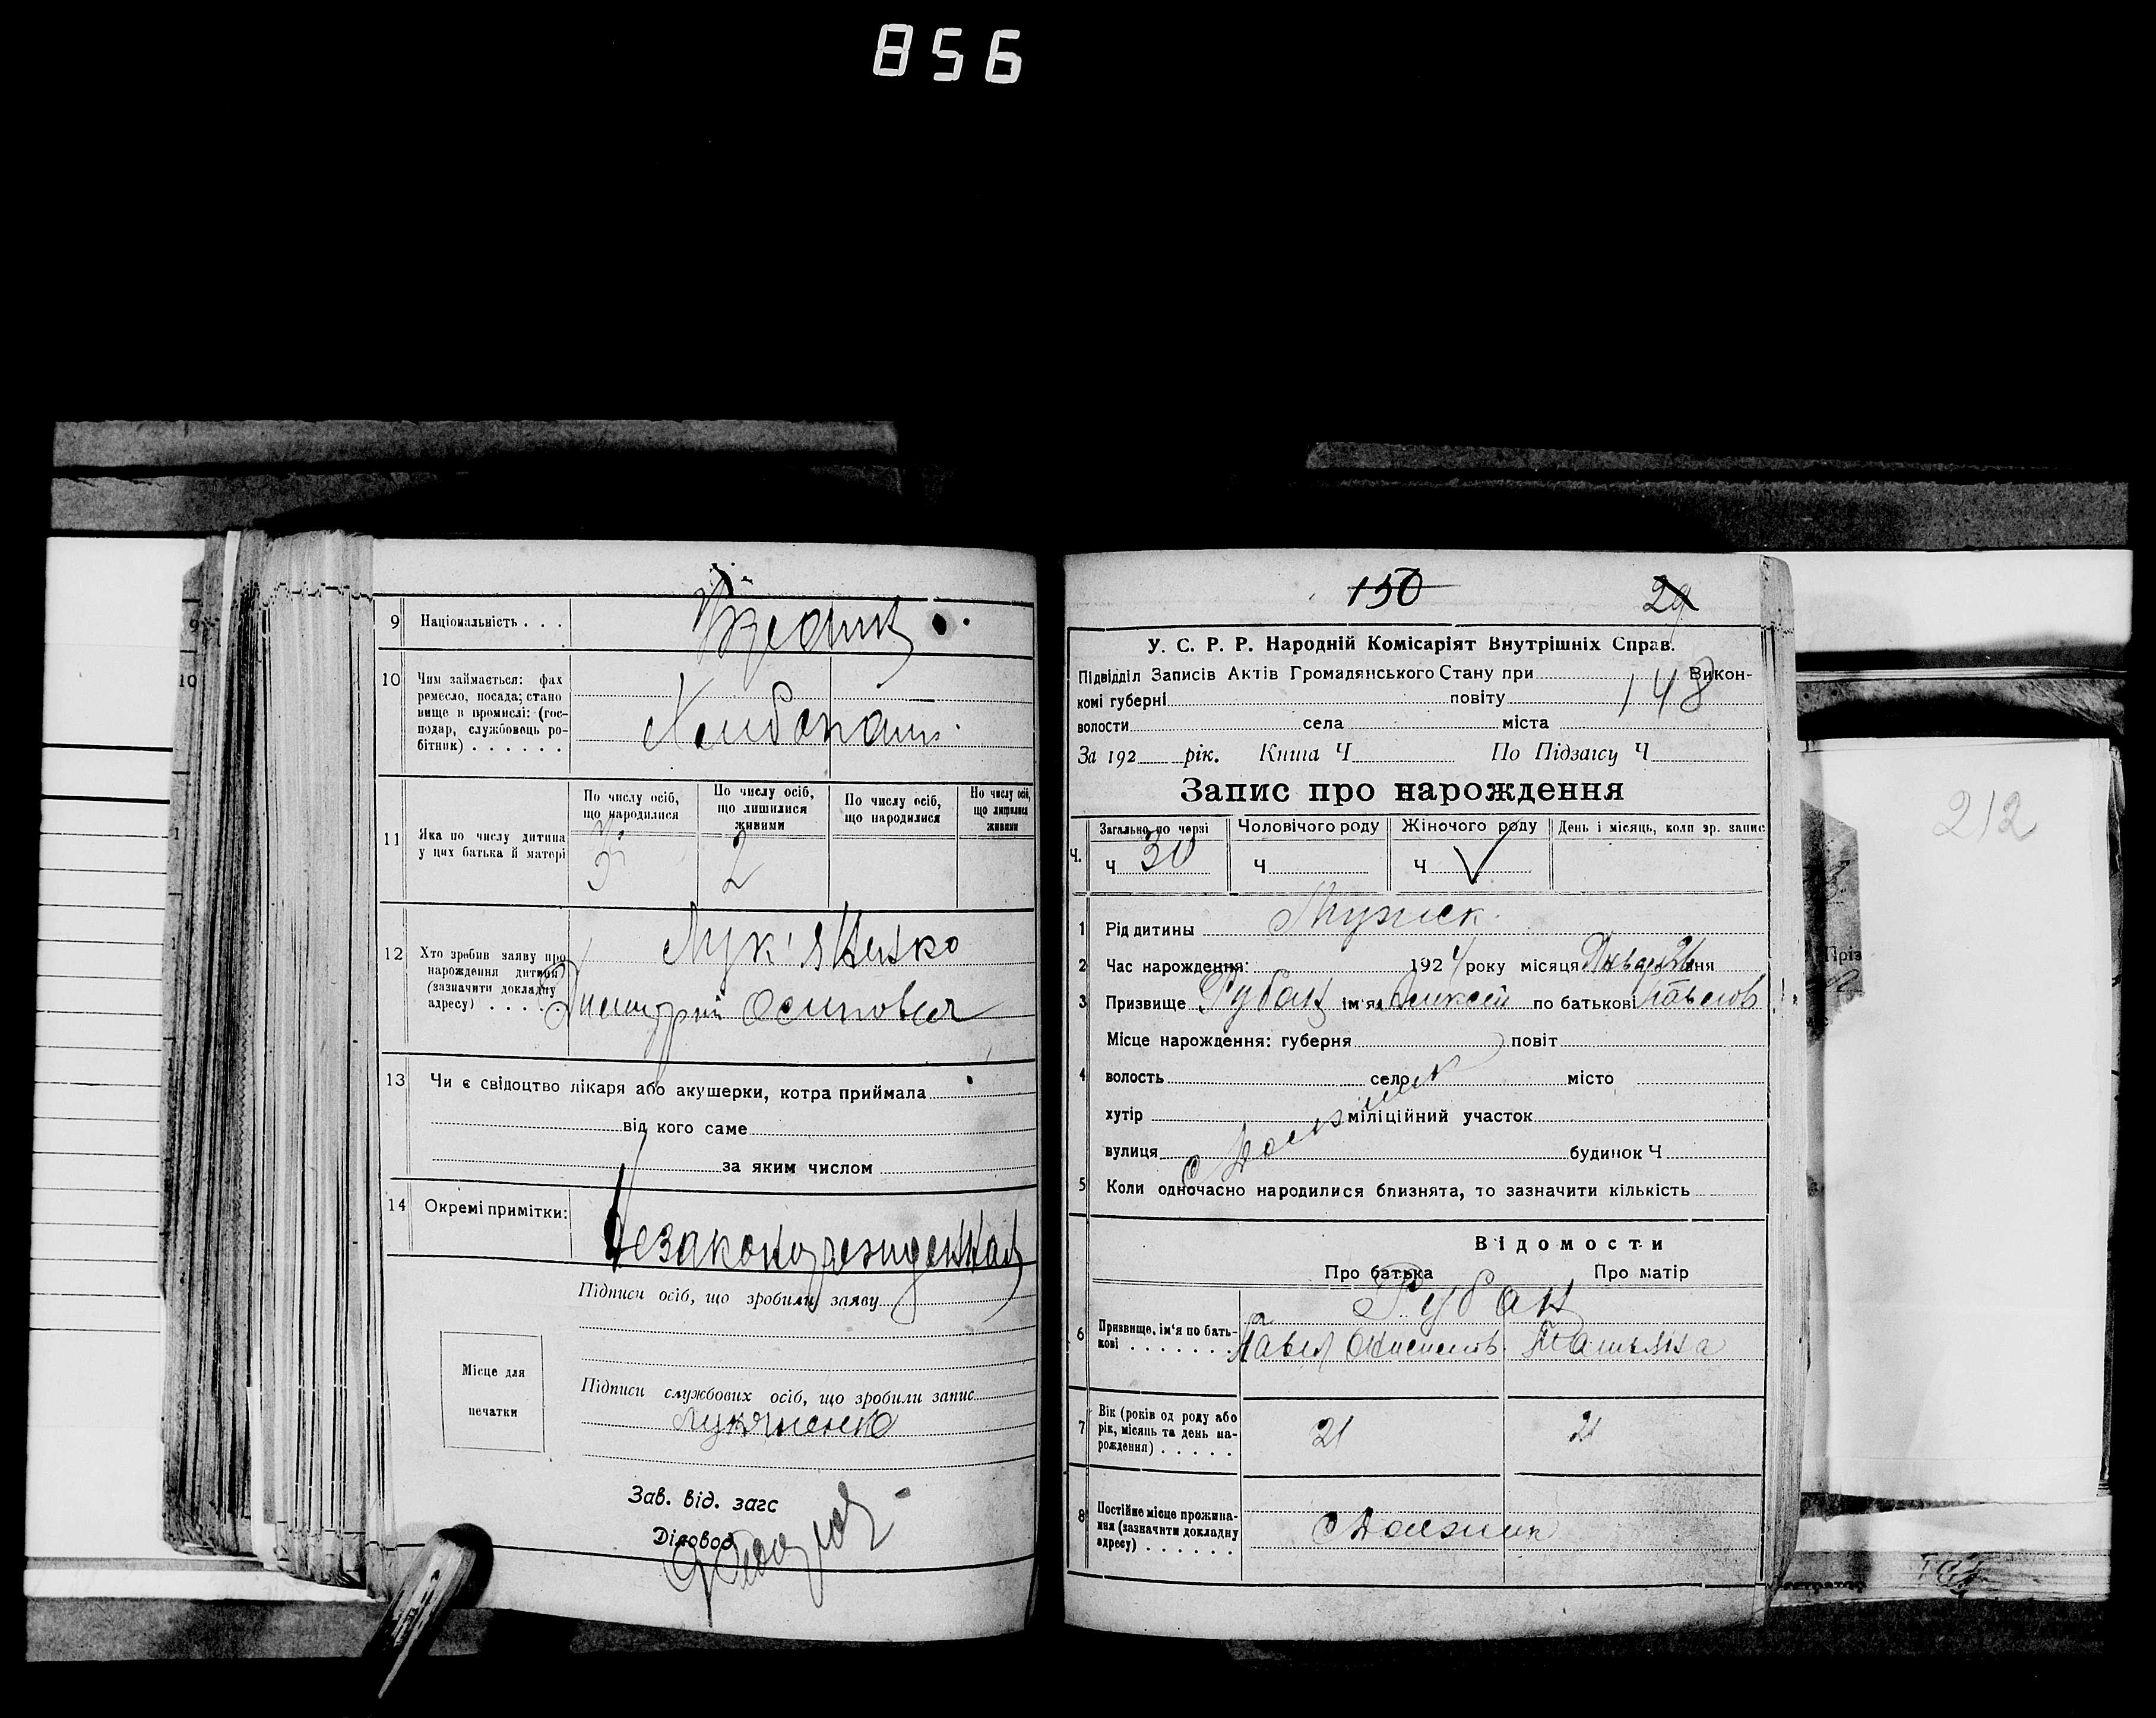 856
9 Національність . . .
10 Чим займається: фах
ремесло, посада; стано
вище в промислі: (гос-
подар, службовець ро-
бітник) . . . . . .
11 Яка по числу дитина
у цих батька й матері
По числу осіб,
що народилися
По числу осіб,
що лишилися
живими
По числу осіб,
що народилися
По числу осіб,
що лишилися
живими
3 2
12 Хто зробив заяву про
нарождення дитини
(зазначити докладну
адресу) . . . .
Лук'яненко
Осипович
13 Чи є свідоцтво лікаря або акушерки, котра приймала
від кого саме
за яким числом
14 Окремі примітки:
Підписи осіб, що зробили заяву
Місце для
печатки
Підписи службових осіб, що зробили запис
Лукяненко
Зав. від. загс
Діловод
150 29
У. С. Р. Р. Народній Комісаріят Внутрішніх Справ.
Підвідділ Записів Актів Громадянського Стану при Викон-
комі губерні повіту 148
волости села міста
За 192 рік. Книга Ч По Підзагсу Ч
Запис про нарождення
Ч. Загально по черзі Чоловічого роду Жіночого роду День і місяць, коли зр. запис
Ч 30 Ч Ч
1 Рід дитини Мужск.
2 Час нарождення: 1924 року місяця дня
3 Призвище Рубан ім'я Алексей по батькові Павлов
Місце нарождення: губерня повіт
4 волость село місто
хутір міліційний участок
вулиця будинок Ч
5 Коли одночасно народилися близнята, то зазначити кількість
Відомости
Про батька Про матір
6 Призвище, ім'я по бать-
кові . . . . . . .
Рубан
Павел Татьяна
7 Вік (років од роду або
рік, місяць та день на-
рождення) . . . . .
21 21
8 Постійне місце прожива-
ння (зазначити докладну
адресу) . . . . . .
212